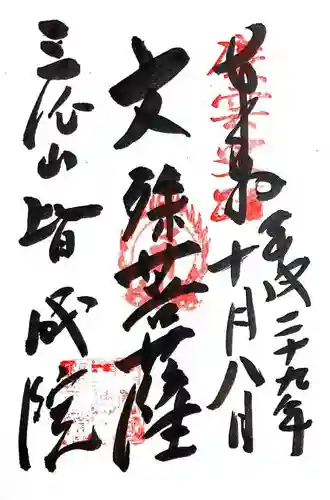 奉拝
平成二十九年
十月八日
文殊菩薩
三瓜山皆成院